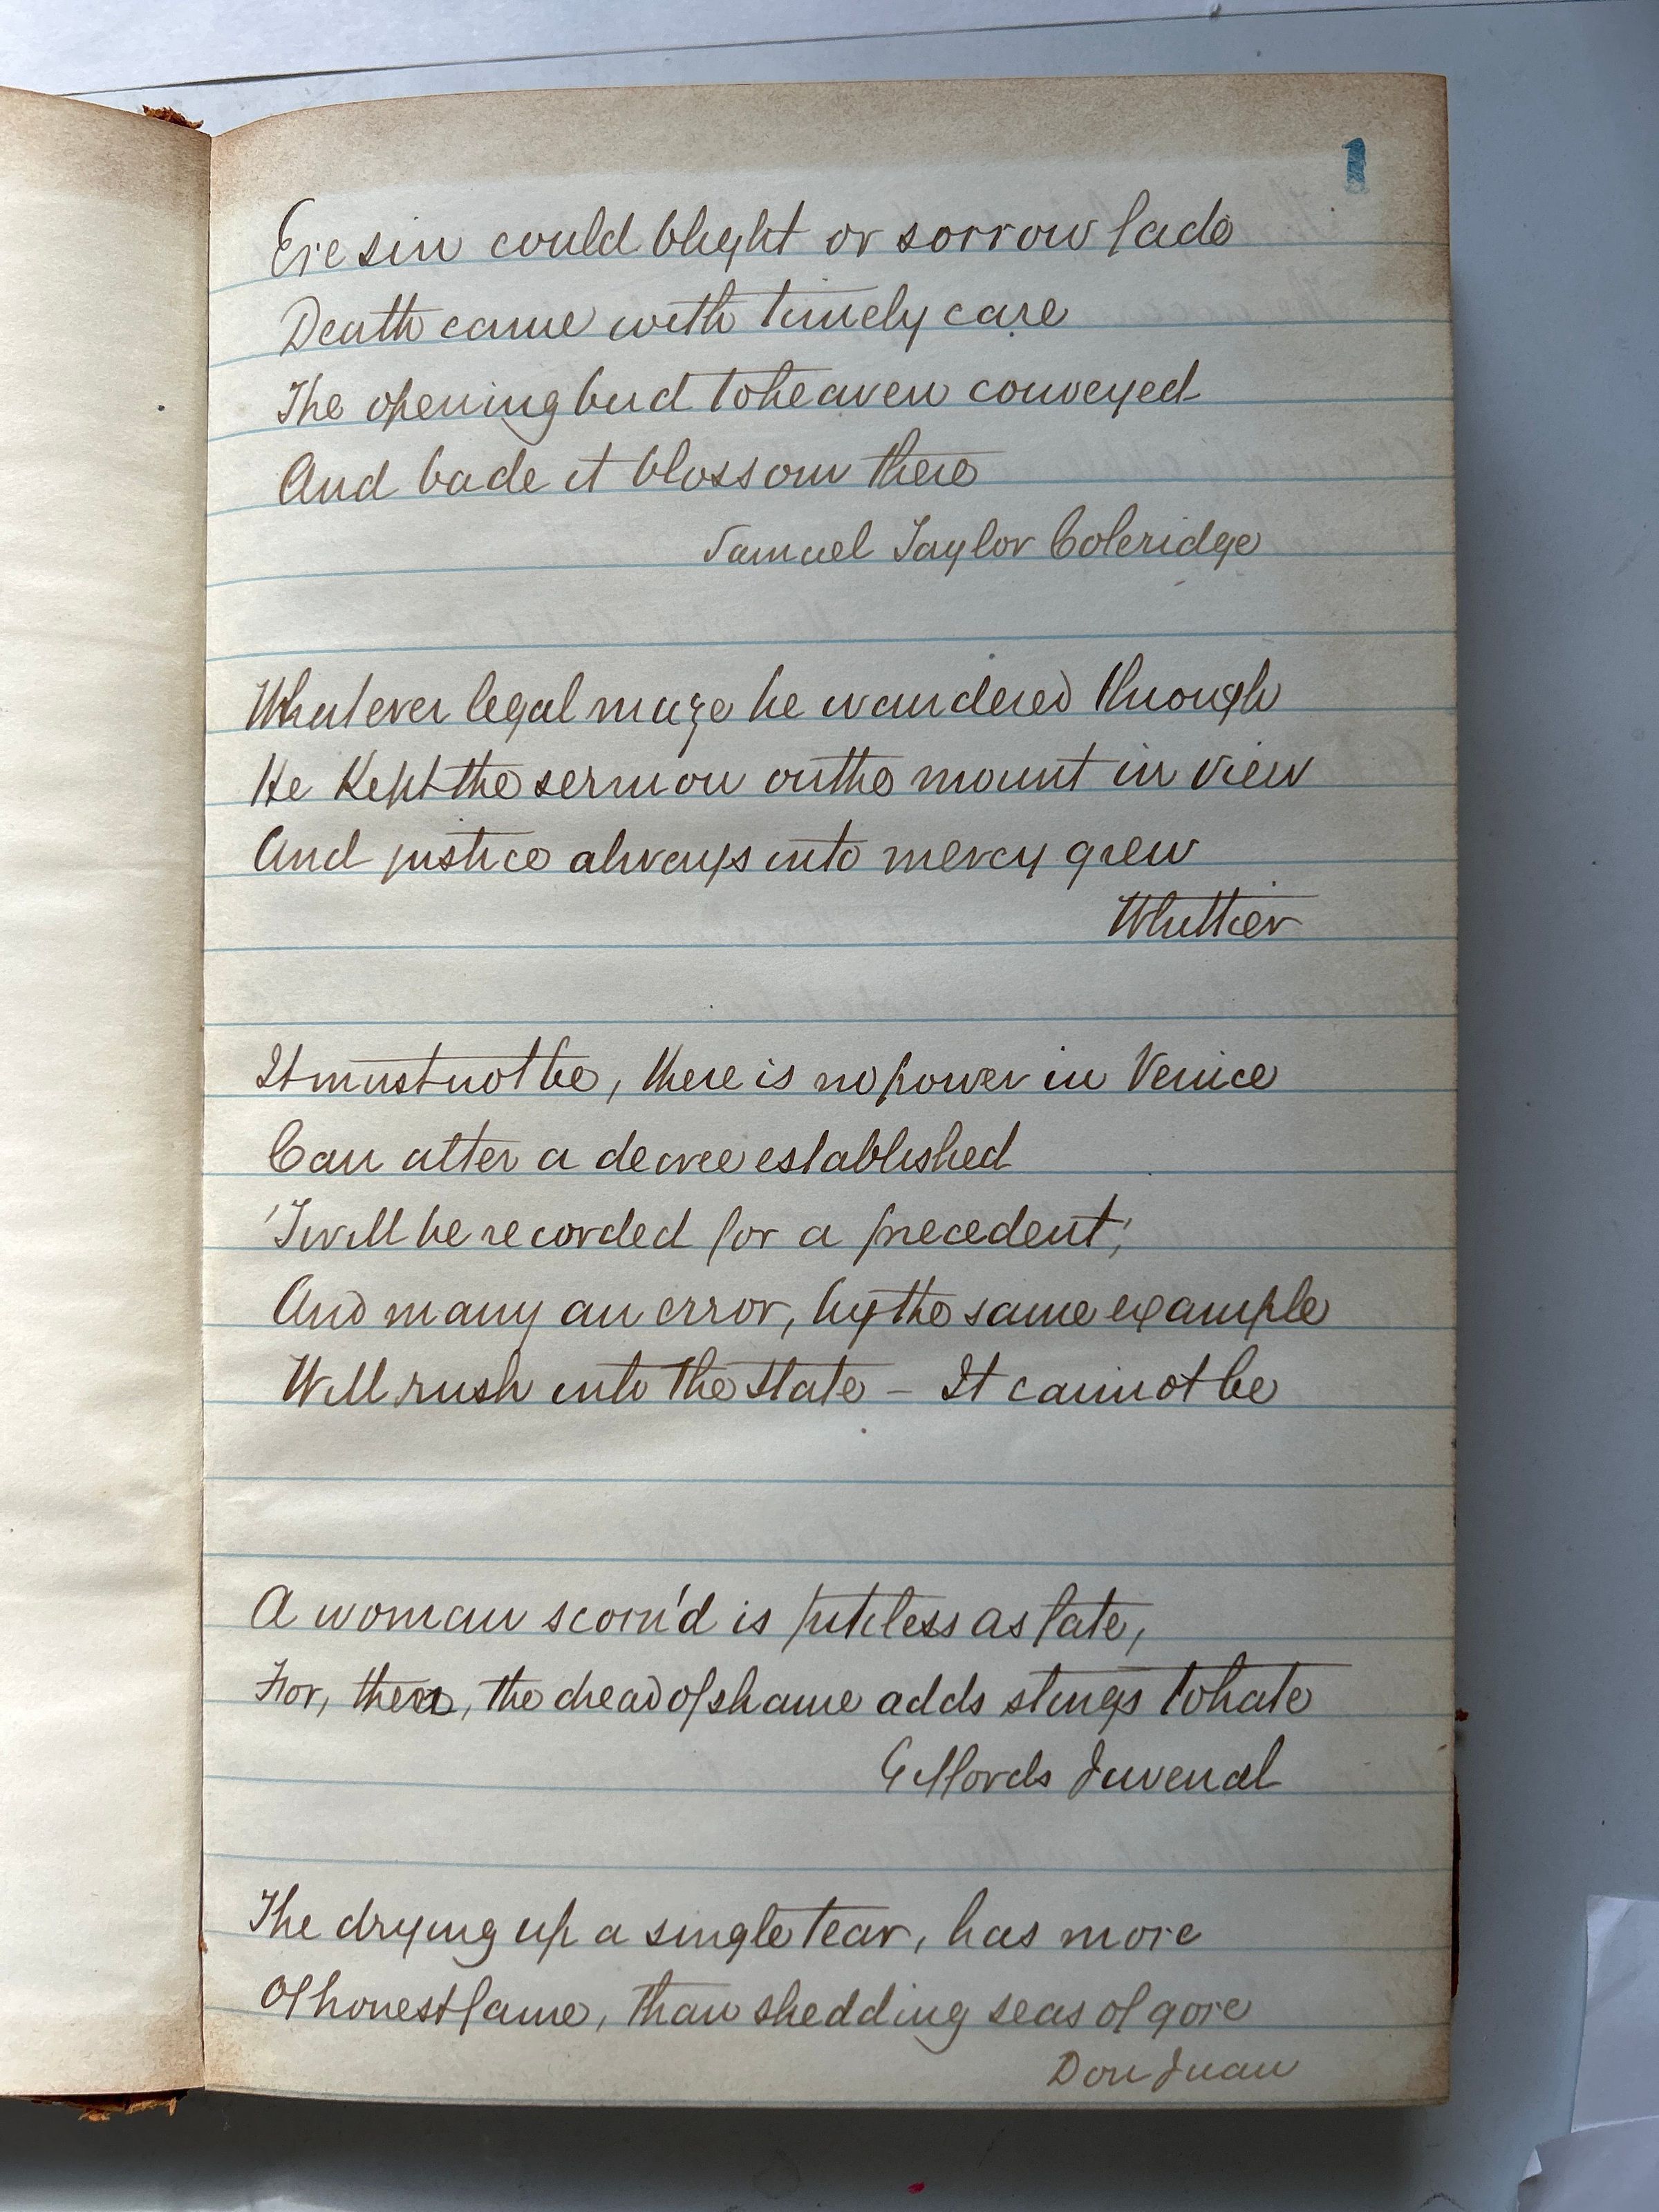 1
Ere sin could blight or sorrow fade
Death came with timely care
The opening bud to heaven conveyed
And bade it blossom there
Samuel Taylor Coleridge
Whatever legal maze he wandered through
He kept the sermon on the mount in view
And justice always into mercy grew
Whittier
It must not be, there is no power in Venice
Can alter a decree established
'Twill be recorded for a precedent;
And many an error, by the same example
Will rush into the state – It cannot be
A woman scorn'd is pitiless as fate,
For, then, the dread of shame adds stings to hate
Giffords Juvenal
The drying up a single tear, has more
Of honest fame, than shedding seas of gore
Don Juan